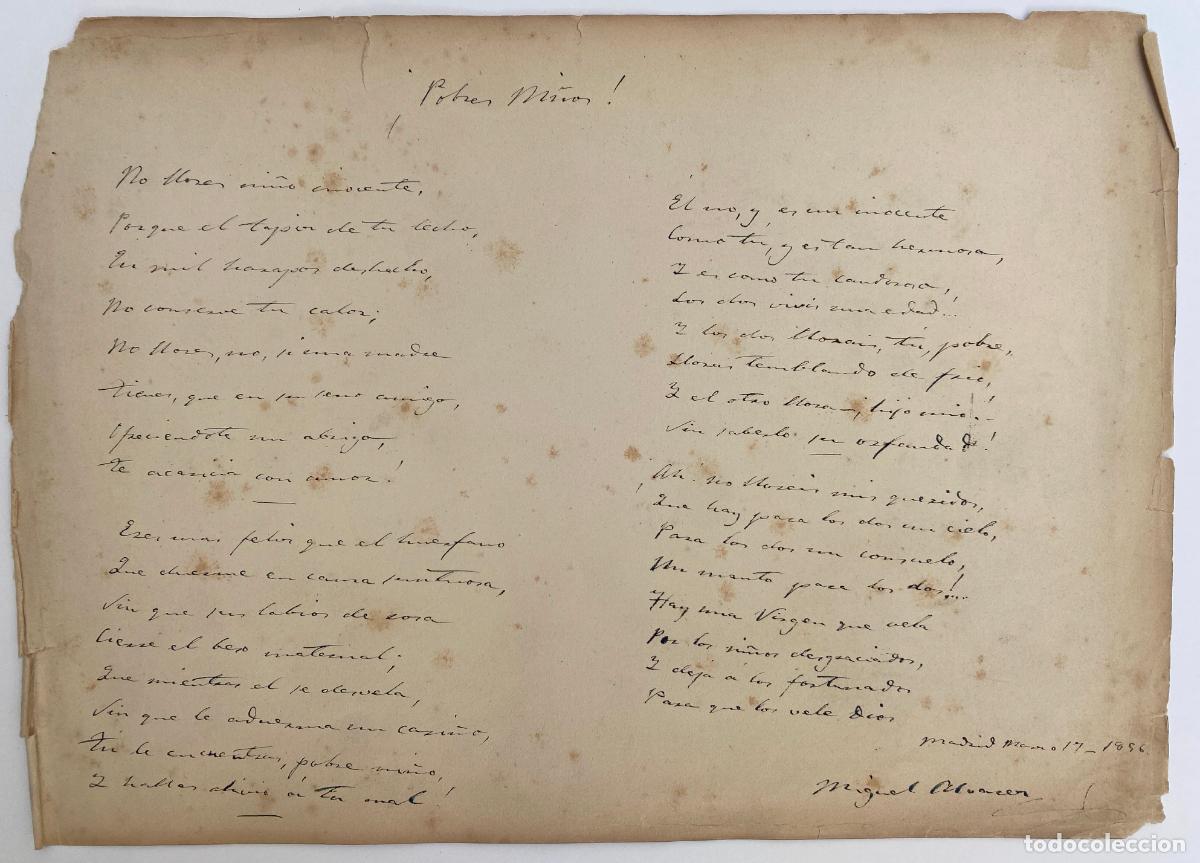 ¡Pobres Niños!
No llores niño inocente,
Porque el tapiz de tu lecho,
En mil harapos deshecho,
No conserve tu calor;
No llores, no, si una madre
tienes, que en su seno amigo,
Ofreciendote un abrigo,
te acaricia con amor!
Eres mas feliz que el huerfano
Que duerme en cama suntuosa,
Sin que sus labios de rosa
Cierre el beso maternal;
Que mientras el se desvela,
Sin que le aduerma un cariño,
Tú le encuentras, pobre niño,
Y hallas alivio á tu mal!
Él no, y es un inocente
Como tu, y es tan hermosa,
Y es como tu candorosa!
Los dos vivis una edad...
Y los dos llorais, tú, pobre,
Lloras temblando de frio,
Y el otro llora, hijo mio...
Sin saberlo su orfandad!
¡Ah. no lloreis mis queridos,
Que hay para los dos un cielo,
Para los dos un consuelo,
Un manto para los dos!...
Hay una Virgen que vela
Por los niños desgraciados,
Y deja á los fortunados
Para que los vele Dios
Madrid Marzo 17_1896
Miguel Alvarez
todocoleccion